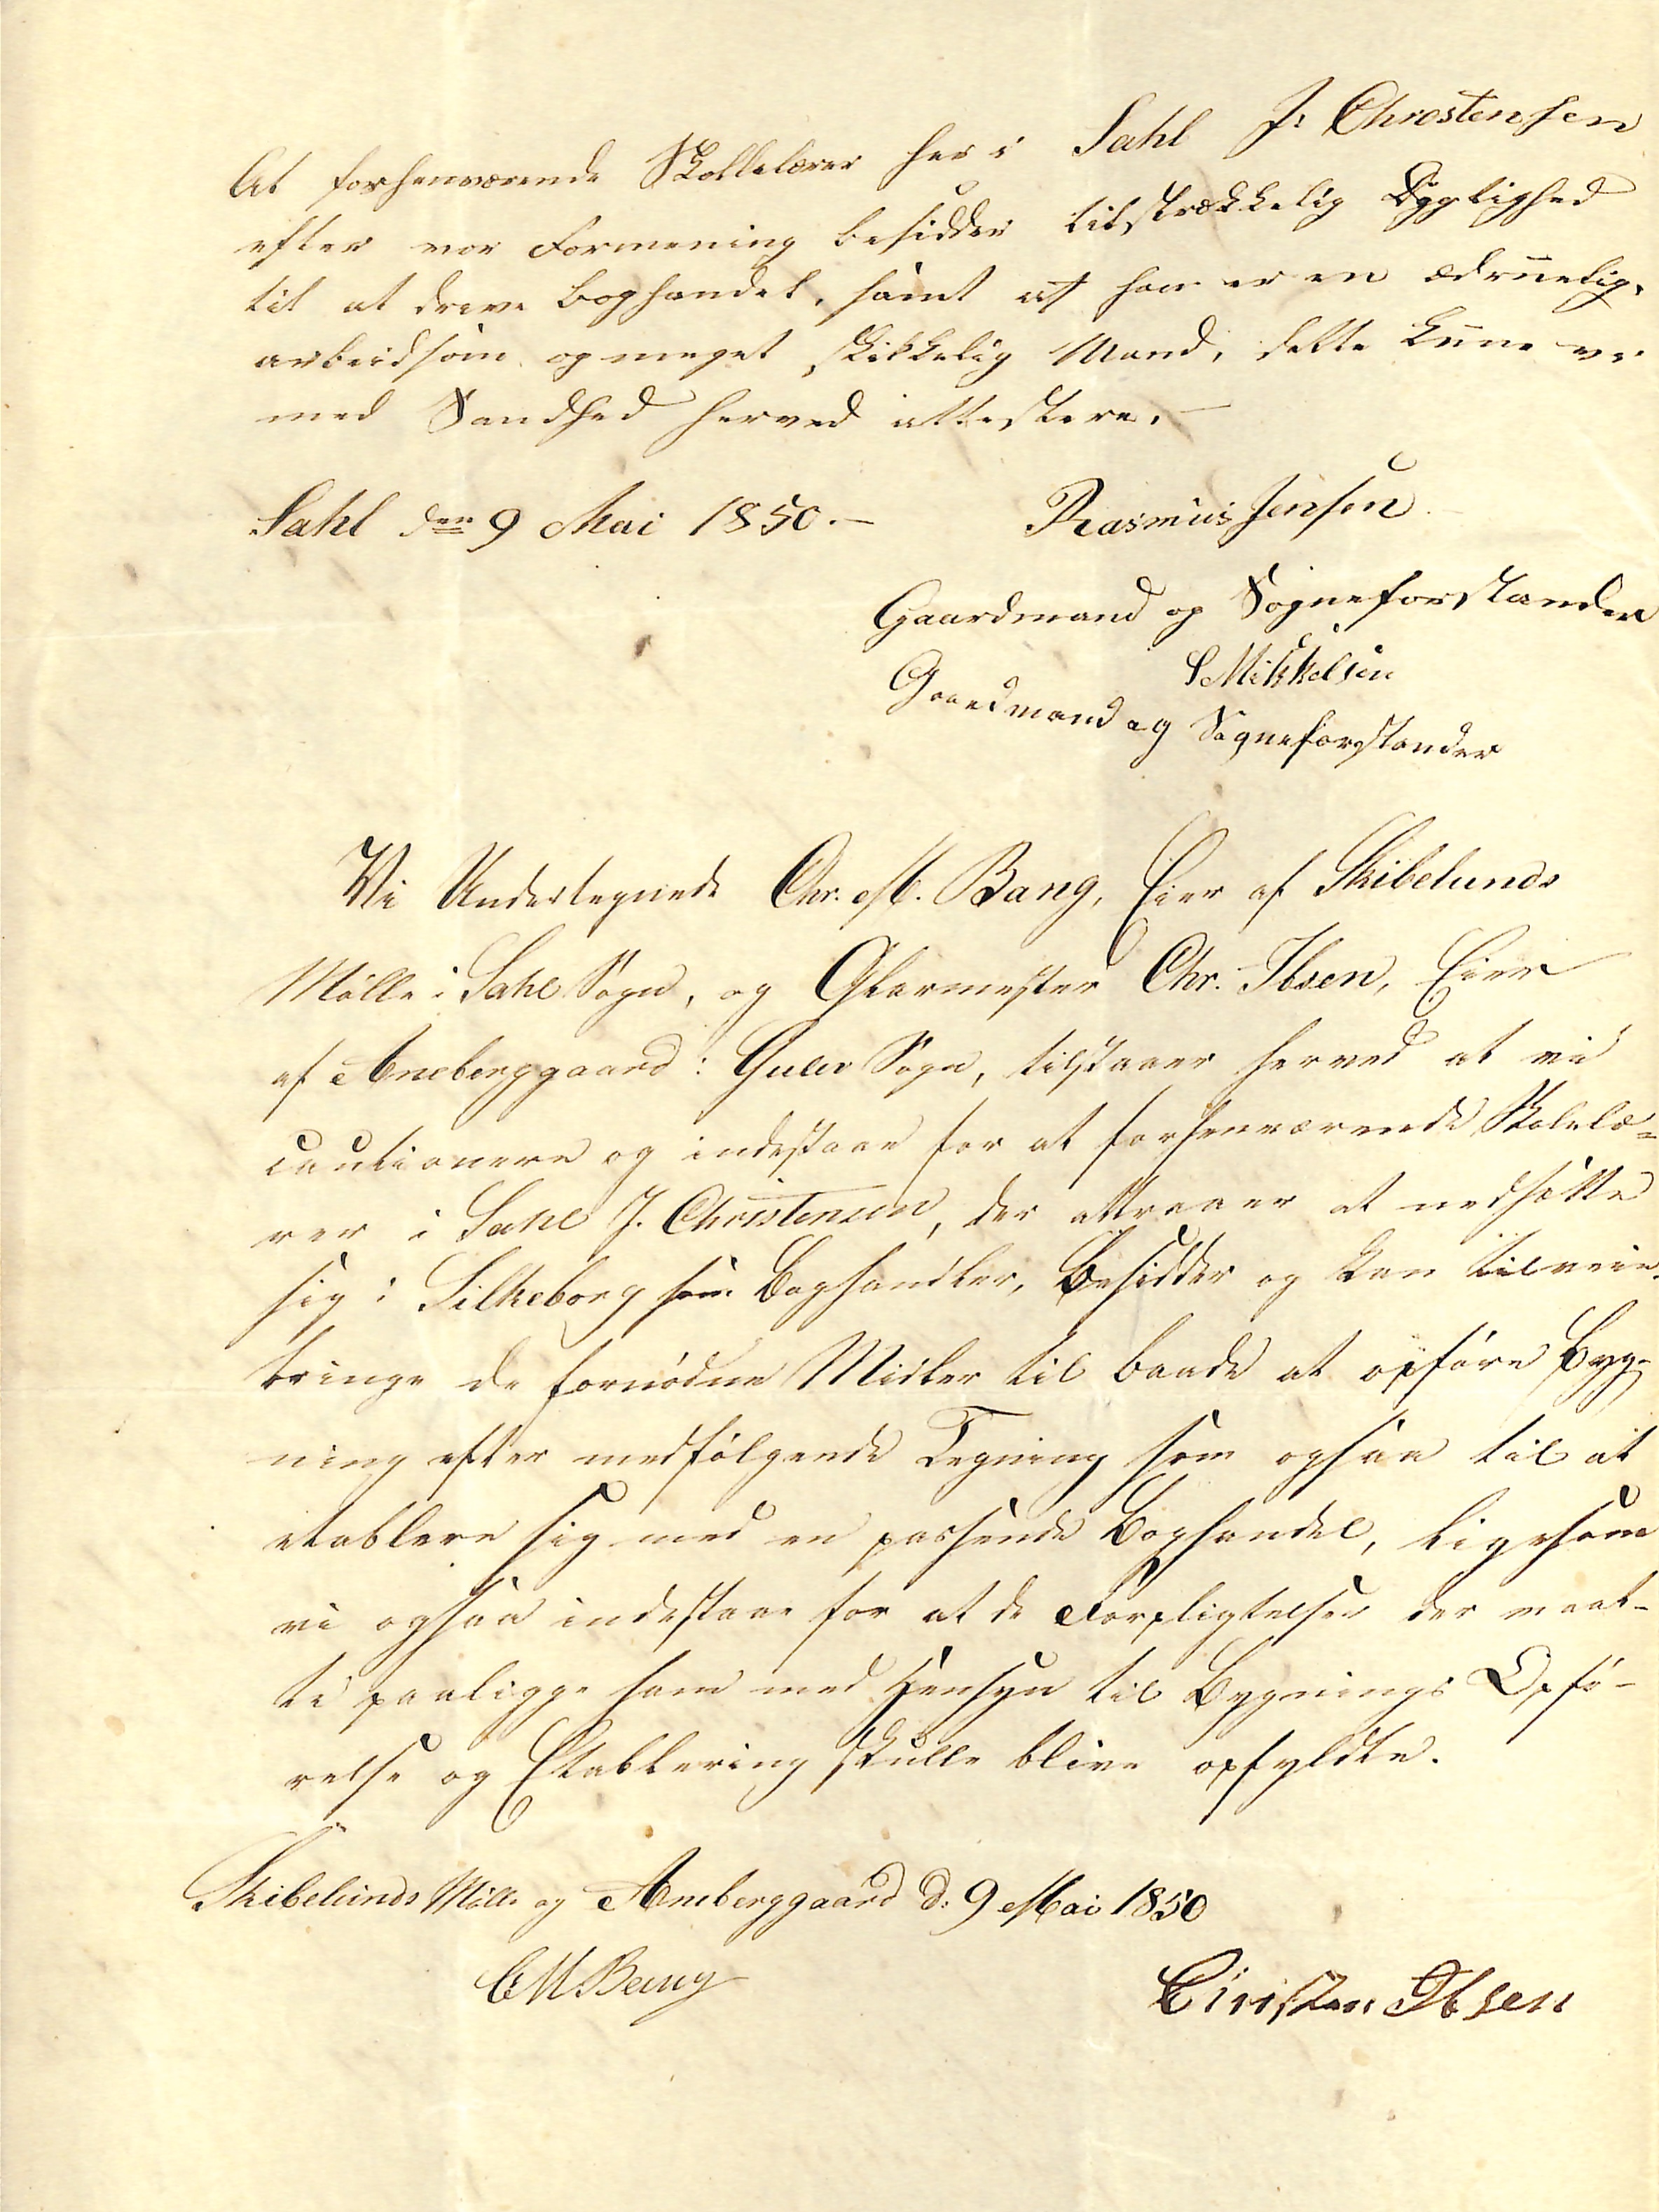 At forhenværende Skollelærer her i Sahl J: Chrestensen
efter vor Formening besidder tilstrækkelig Dygtighed
til at drive boghandel, samt at han er en ædruelig,
arbeidsom og meget skikkelig Mand, dette kune vi
med Sandhed herved attestere. —
Sahl den 9 Mai 1850. — Rasmus Jensen
Gaardmand og Sogneforstander
S Mikkelsen
Gaardmand og Sogneforstander
Vi Undertegnede Chr. M. Bang, Eier af Skibelunds
Mølle i Sahl Sogn, og Glarmester Chr. Ibsen, Eier
af Aneberggaard i Gulev Sogn, tilstaaer herved at vi
cautionere og indestaae for at forhenværende Skolelæ=
rer i Sahl J. Christensen, der attraaer at nedsætte
sig i Silkeborg som Boghandler, besidder og kan tilveie-
bringe de fornødne Midler til baade at opføre Byg-
ning efter medfølgende Tegning som ogsaa til at
etablere sig med en passende Boghandel, ligesom
vi ogsaa indestaae for at de Forpligtelser der maat-
te paaligge ham med Hensyn til Bygnings Opfø-
relse og Etablering skulle blive opfyldte.
Skibelunds Mølle og Aneberggaard d: 9 Mai 1850
CM Bang Christen Ibsen